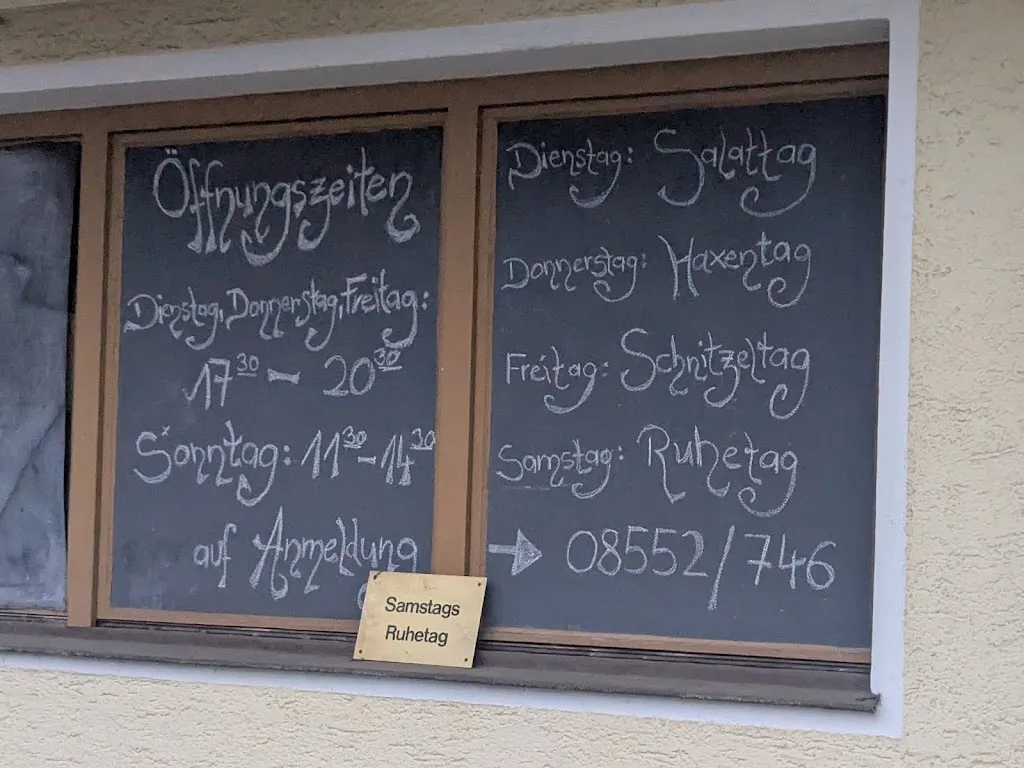 Öffnungszeiten
Dienstag, Donnerstag, Freitag:
17³⁰ – 20³⁰
Sonntag: 11³⁰-14³⁰
auf Anmeldung
Dienstag: Salattag
Donnerstag: Haxentag
Freitag: Schnitzeltag
Samstag: Ruhetag
→ 08552/746
Samstags
Ruhetag